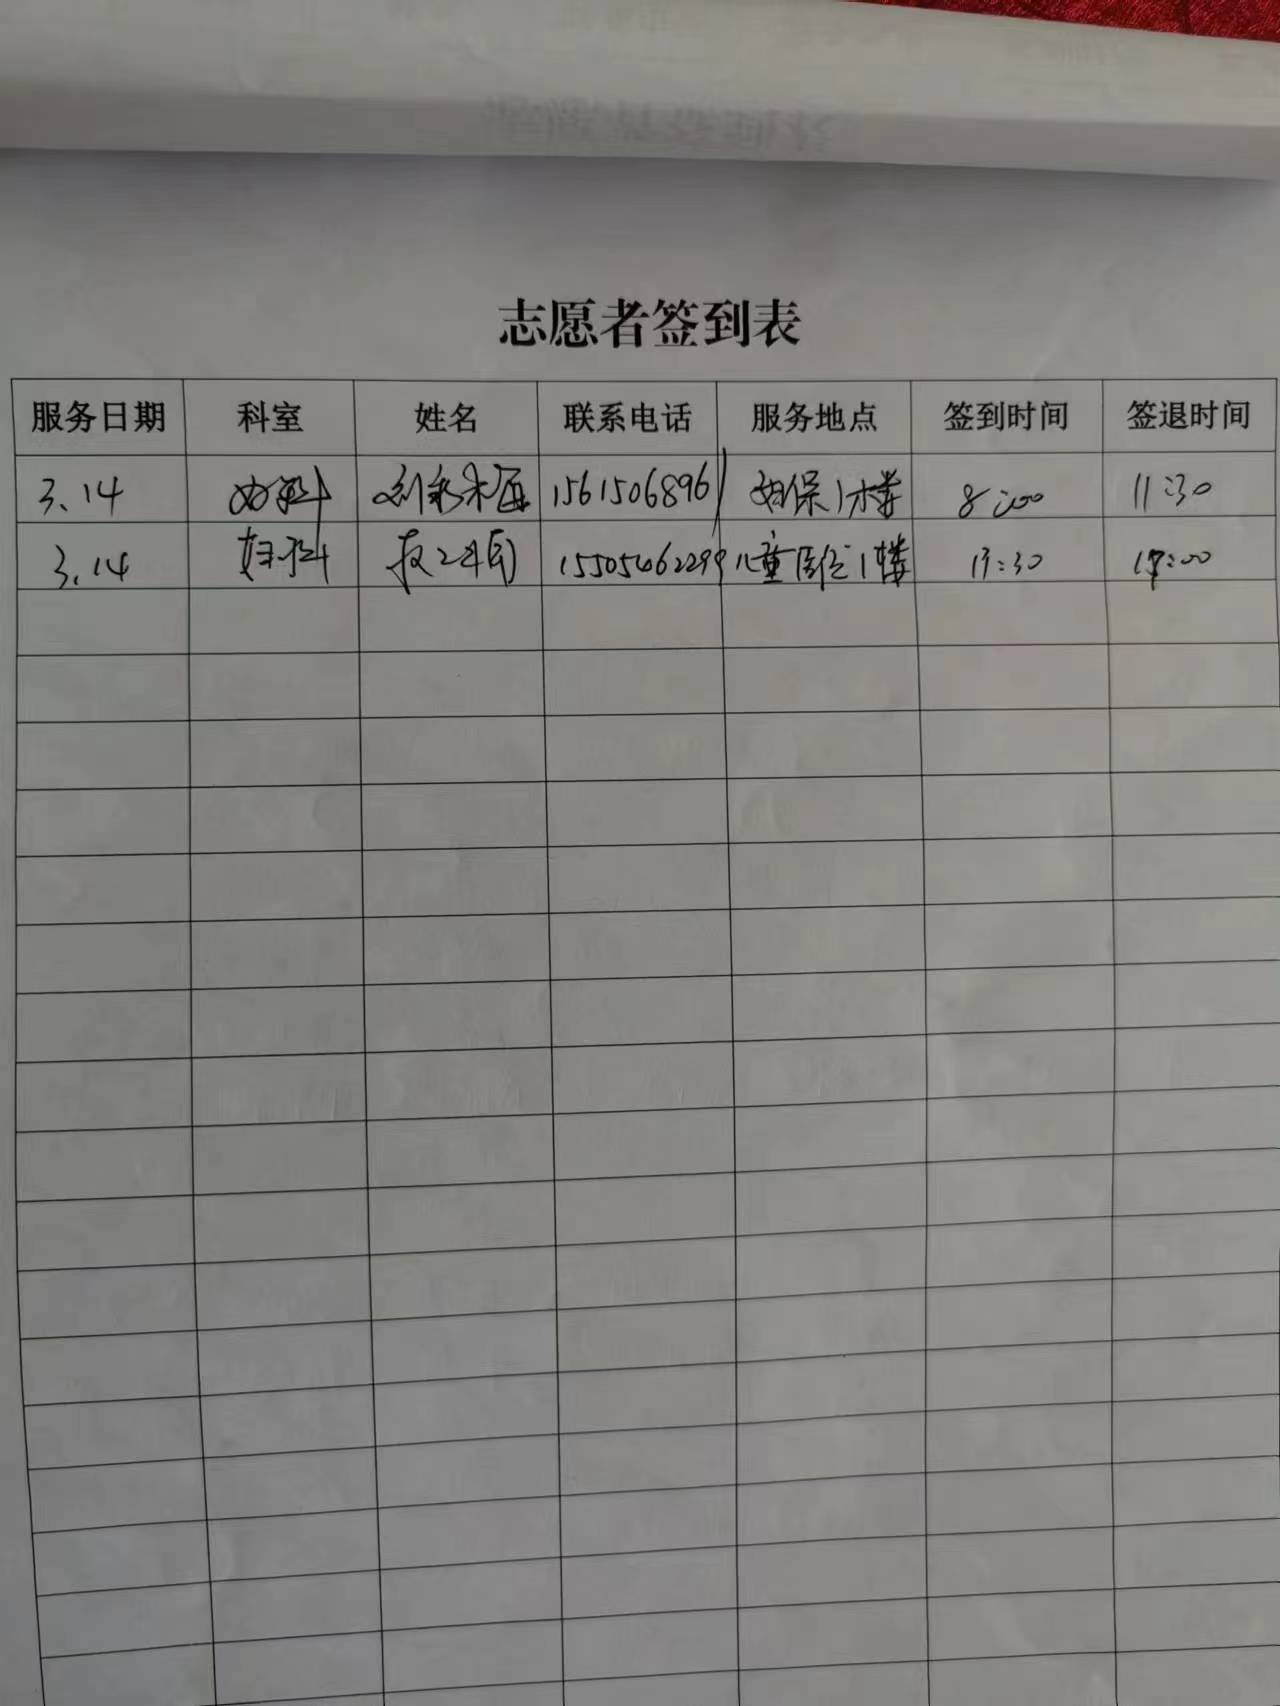 志愿者签到表
服务日期 科室 姓名 联系电话 服务地点 签到时间 签退时间
3.14 妇科 刘彩梅 15615068961 妇保1楼 8:00 11:30
3.14 妇科 15505462299 儿童医院1楼 13:30 17:00